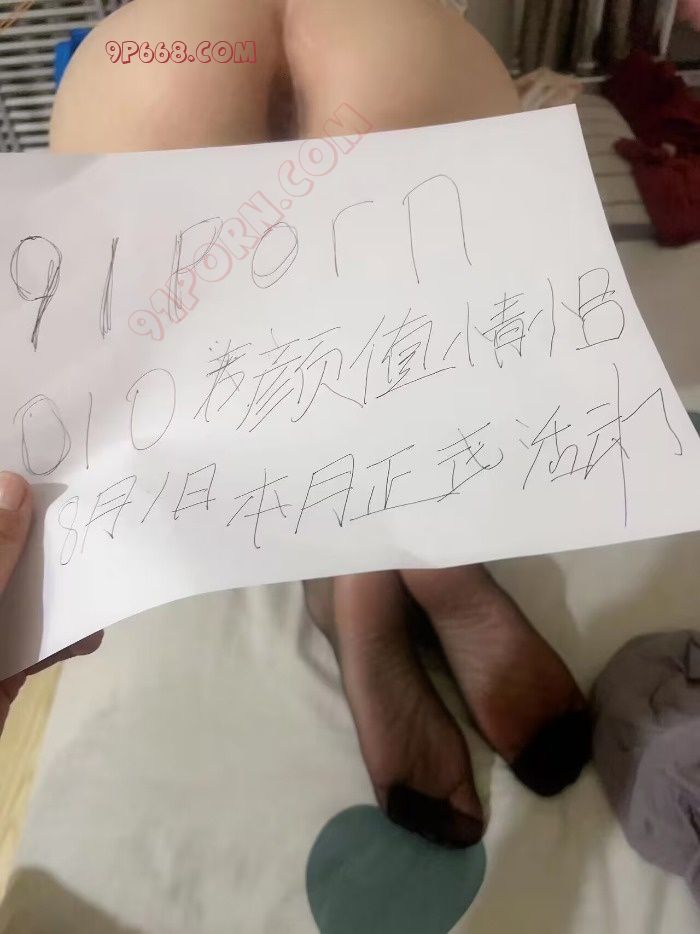 9P668.COM
91Porn
91PORN.COM
010 颜值情侣
8月1日本月正式活动